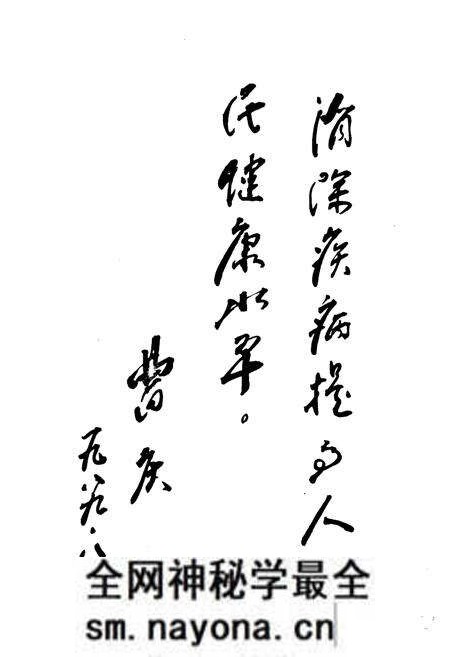 消除疾病提高人
民健康水平。
一九八九、八
全网神秘学最全
sm.nayona.cn